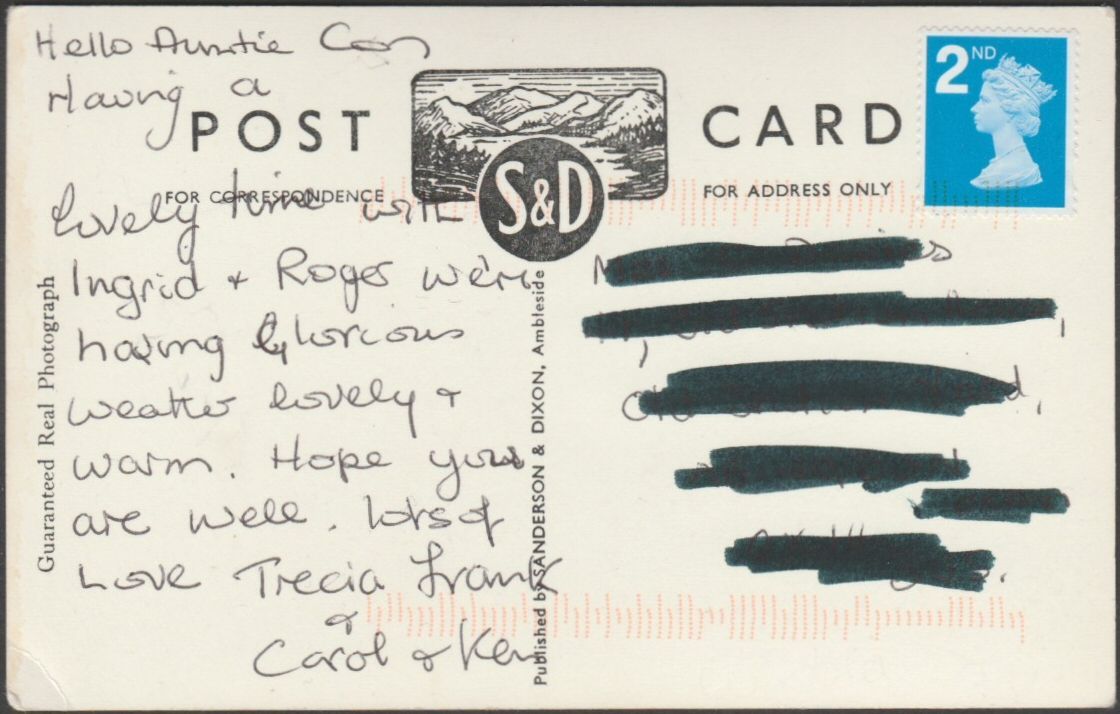 Hello Auntie Con
Having a
POST CARD
2ND
FOR CORRESPONDENCE
FOR ADDRESS ONLY
S&D
lovely time with
Ingrid + Roger we're
having Glorious
weather lovely +
warm. Hope you
are well. lots of
Love Trecia Frank
+
Carol + Ken
Guaranteed Real Photograph
Published by SANDERSON & DIXON, Ambleside